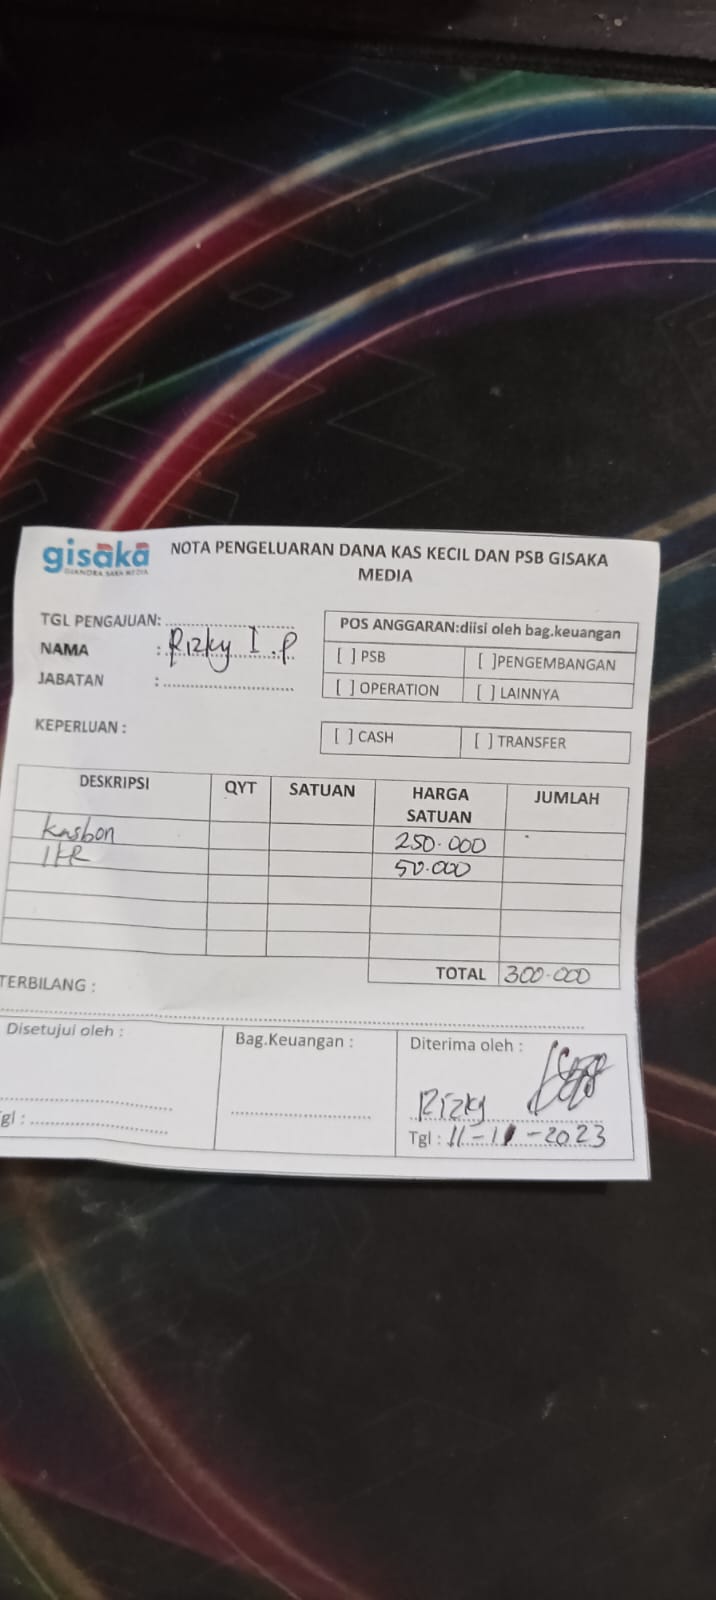 gisaka
GIANDRA SAKA MEDIA
NOTA PENGELUARAN DANA KAS KECIL DAN PSB GISAKA
MEDIA
TGL PENGAJUAN:
NAMA : Rizky I.P
JABATAN :
POS ANGGARAN:diisi oleh bag.keuangan
[ ] PSB [ ]PENGEMBANGAN
[ ] OPERATION [ ] LAINNYA
KEPERLUAN :
[ ] CASH [ ] TRANSFER
DESKRIPSI QYT SATUAN HARGA SATUAN JUMLAH
Kasbon 250.000
50.000
TOTAL 300.000
TERBILANG :
Disetujui oleh : Bag.Keuangan : Diterima oleh :
Rizky
gl : Tgl : 11-11-2023